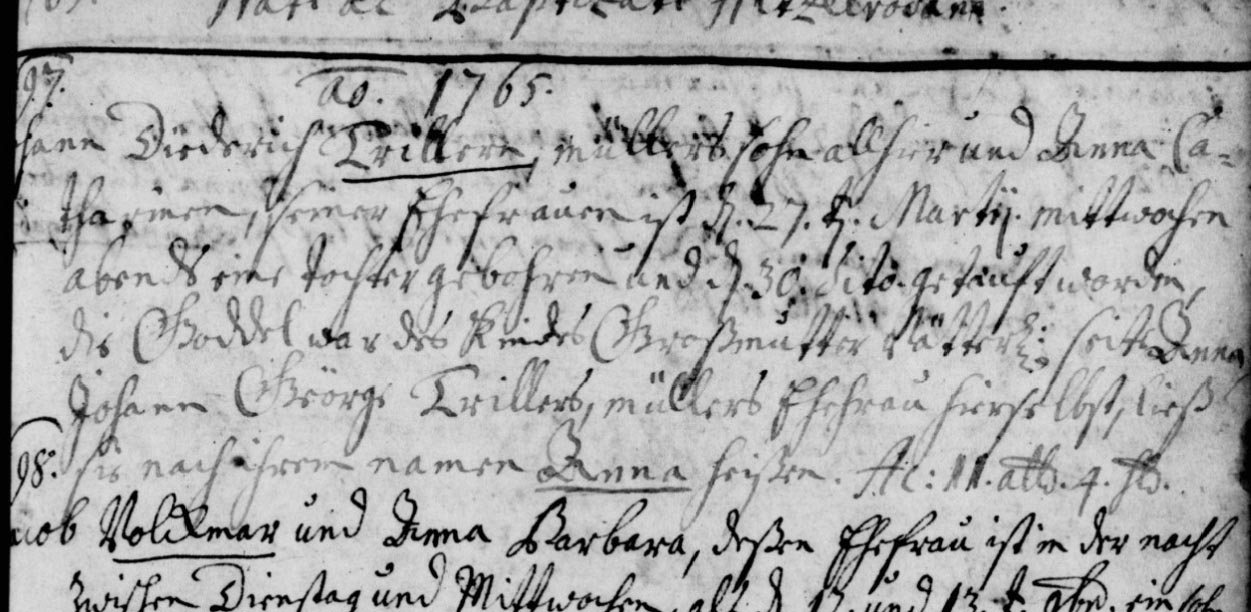 Nati ac Baptizati
97.
ao. 1765.
hann Diederich Trillern, müllers sohn allhier und Anna Ca-
tharinen, seiner Ehefrauen ist d. 27. t. Martij. mittwochen
abends eine tochter gebohren und d. 30. dito. getauft worden,
die Goddel war des Kindes Großmutter seite Anna
Johann George Trillers, müllers Ehefrau hierselbst, ließ
98. sie nach ihrem namen Anna heißen. Ac: 11. alb. 4. hlr.
acob Volckmar und Anna Barbara, deßen Ehefrau ist in der nacht
zwischen Dienstag und Mittwochen, alß d. 12. und 13. t.